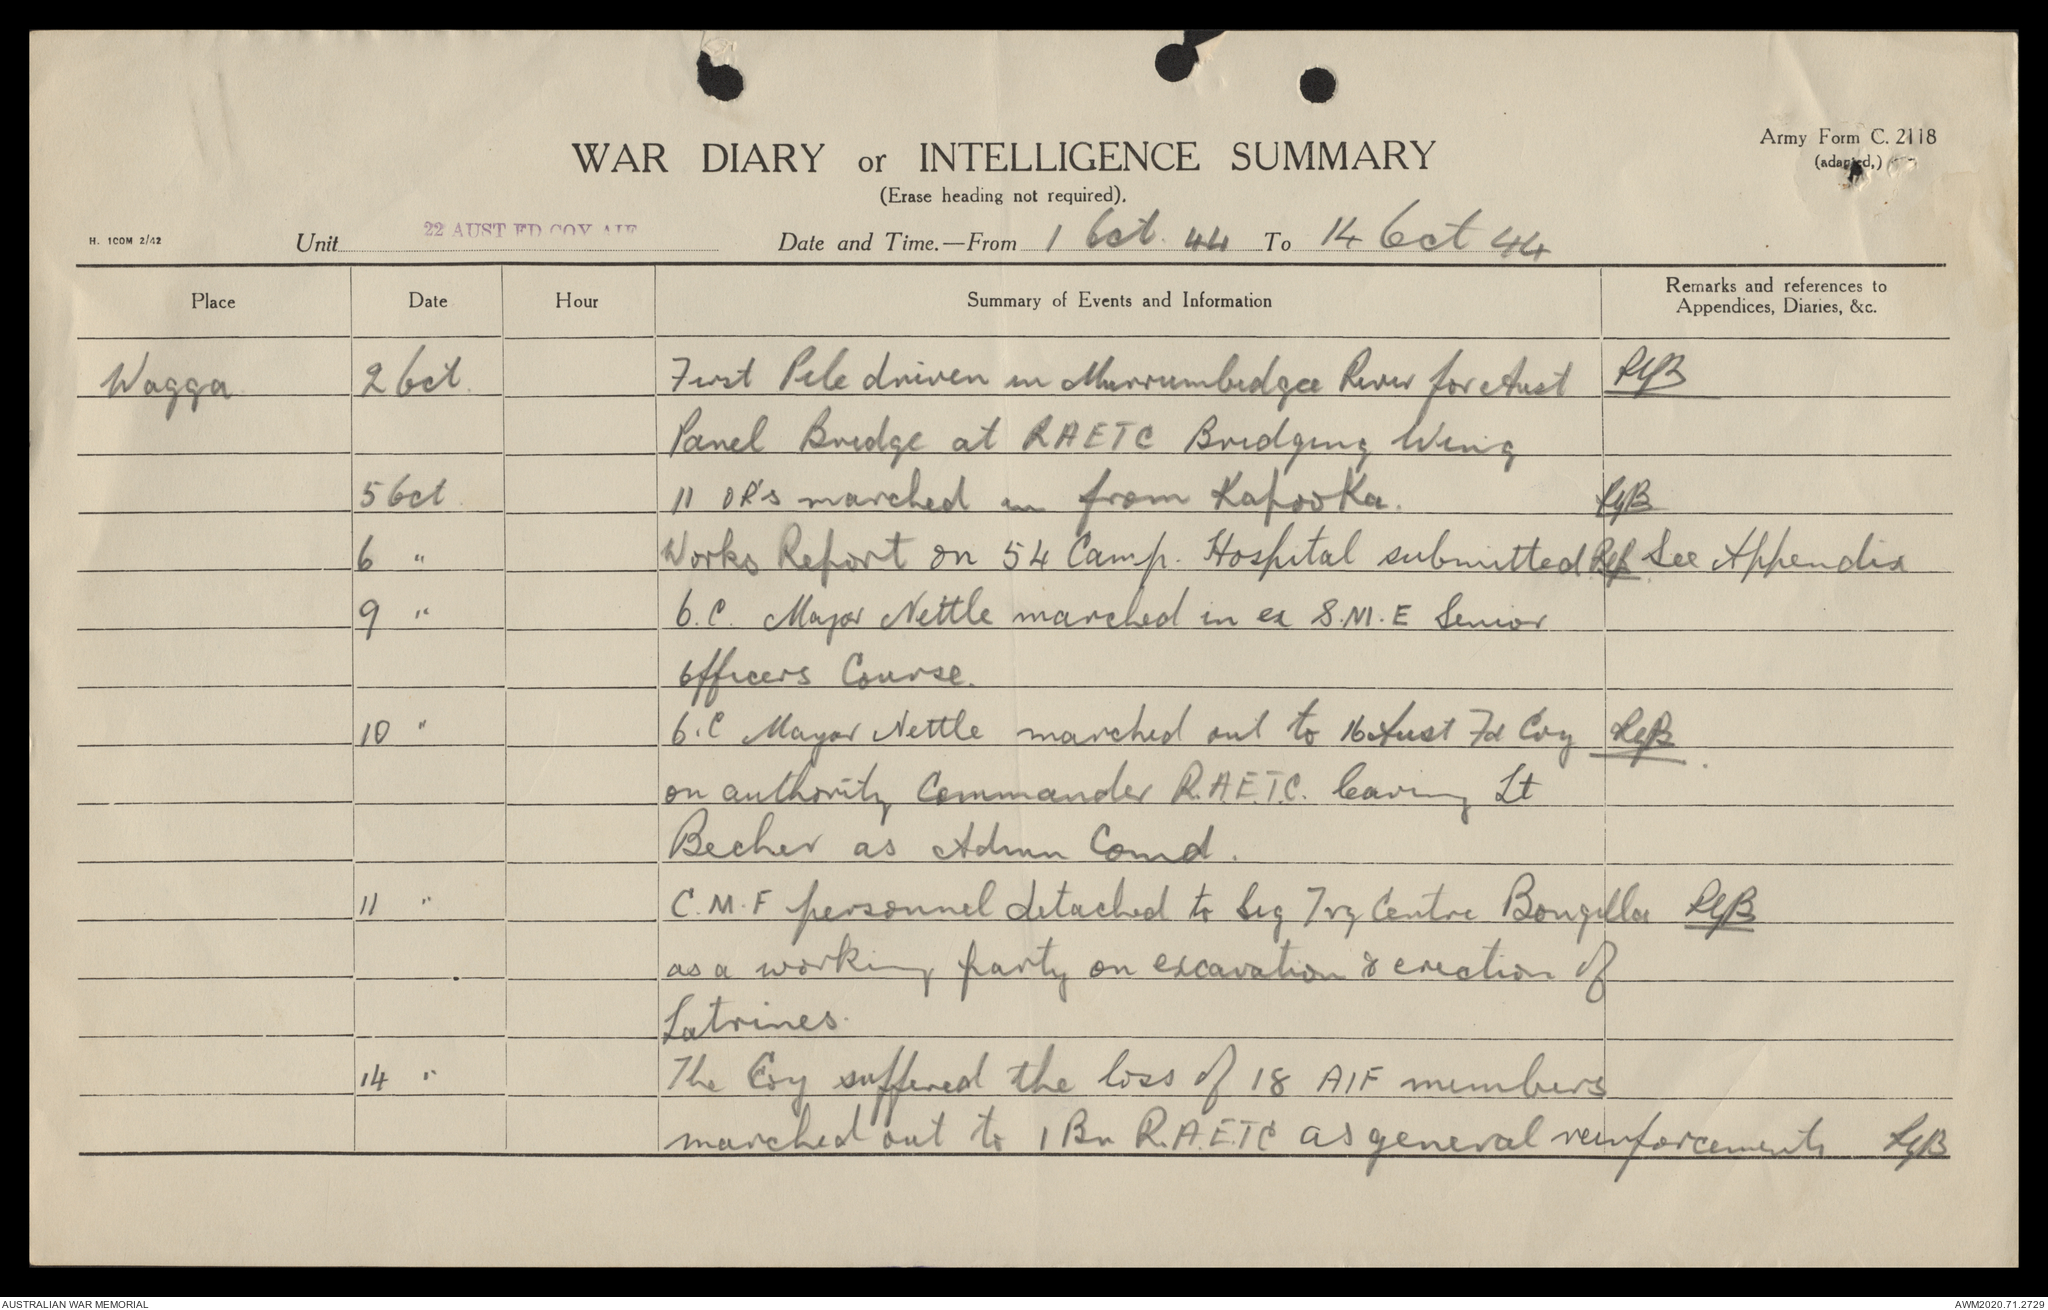 Army Form C. 2118
WAR DIARY or INTELLIGENCE SUMMARY
(adapted,)
(Erase heading not required).
H. 100M 2/42 Unit 22 AUST FD COY AIF Date and Time.—From 1 Oct. 44 To 14 Oct 44
Place Date Hour Summary of Events and Information Remarks and references to
Appendices, Diaries, &c.
Wagga 2 Oct. First Pile driven in Murrumbidgee River for Aust
Panel Bridge at RAETC Bridging Wing
5 Oct 11 OR's marched in from Kapooka.
6 " Works Report on 54 Camp. Hospital submitted See Appendix
9 " O.C. Major Nettle marched in ex S.M.E Senior
Officers Course.
10 " O.C Major Nettle marched out to 16 Aust Fd Coy
on authority Commander R.A.E.T.C. leaving Lt
Becher as Admin Comd.
11 " C.M.F personnel detached to Sig Trg Centre Bongilla
as a working party on excavation & erection of
Latrines.
14 " The Coy suffered the loss of 18 AIF members
marched out to 1 Bn R.A.E.TC as general reinforcements
AUSTRALIAN WAR MEMORIAL AWM2020.71.2729